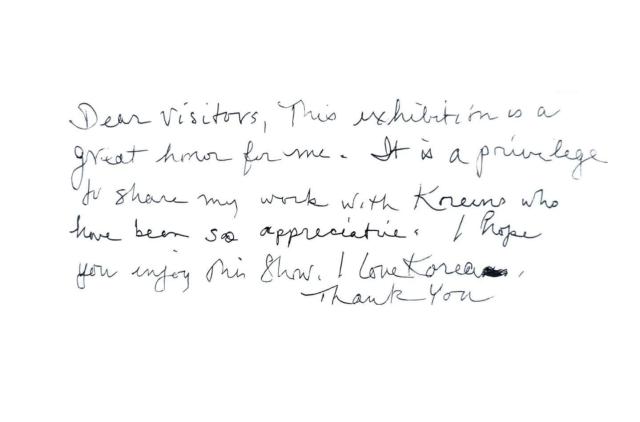 Dear Visitors, This exhibition is a
great honor for me. It is a privilege
to share my work with Koreans who
have been so appreciative. I hope
you enjoy this show. I love Korea.
Thank You